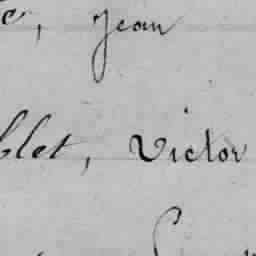 e, Jean
blet, Victor